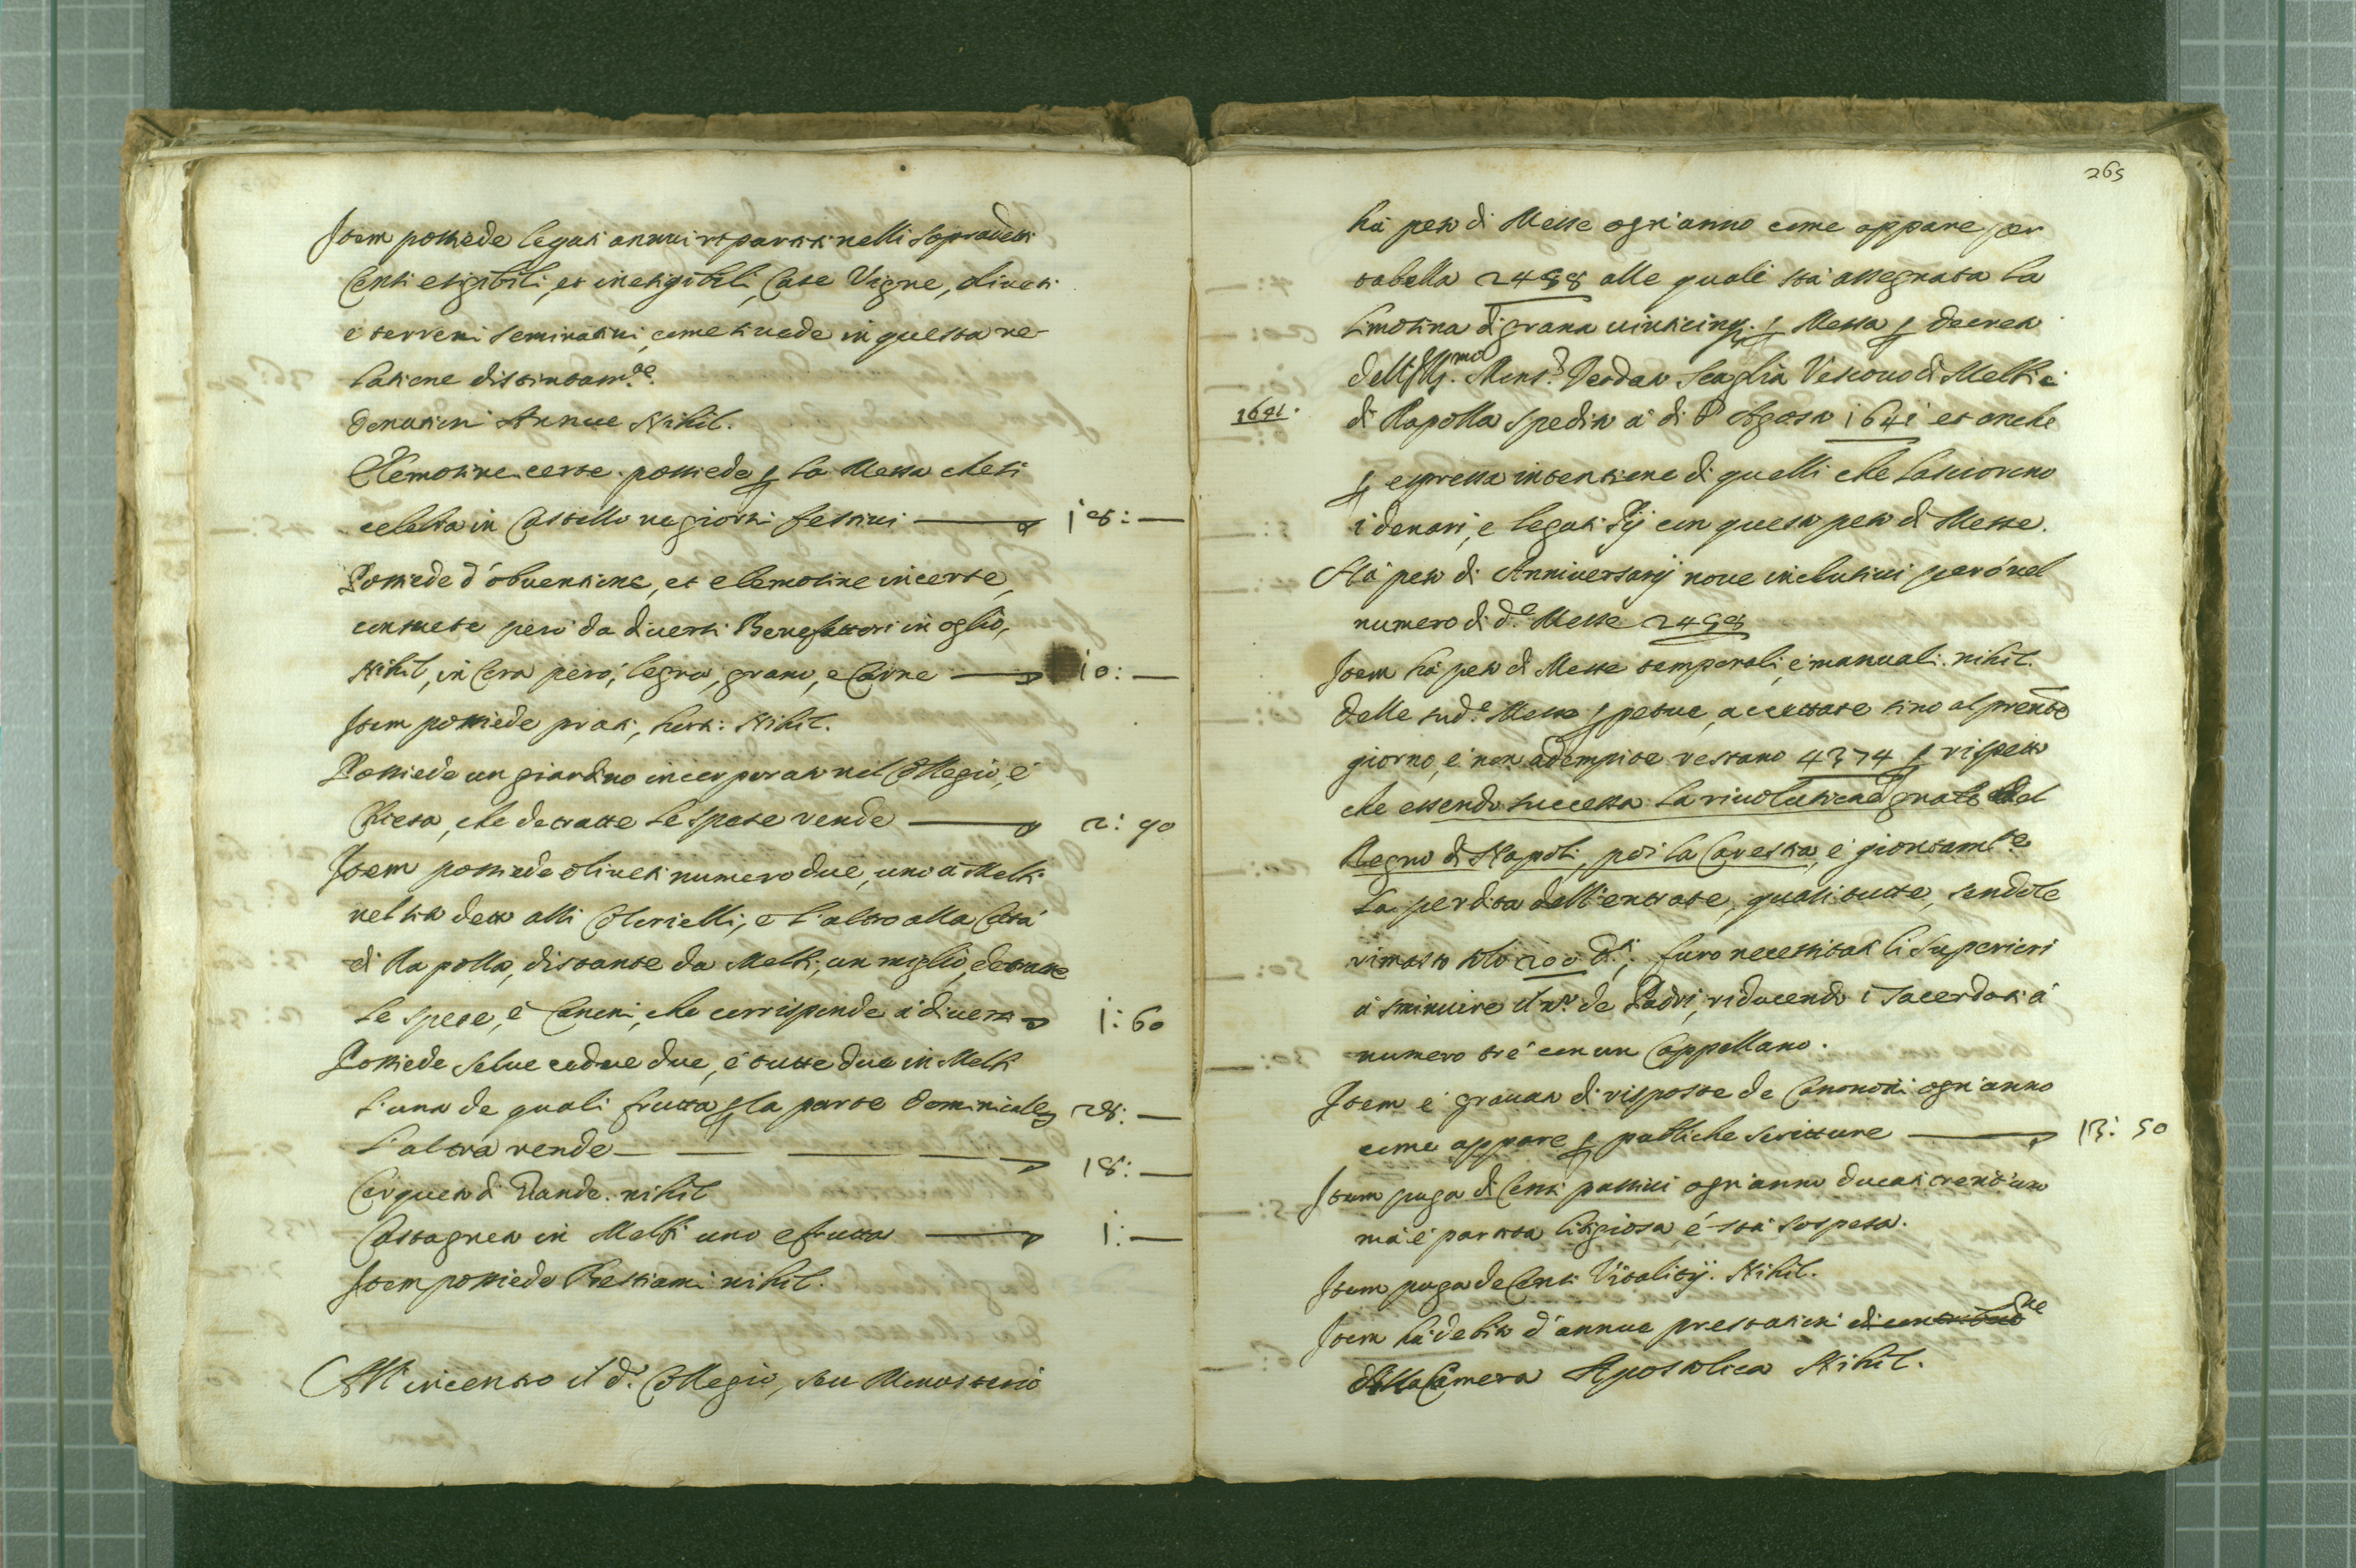 Item possiede legati annui ripartiti nelli sopradetti
Censi esigibili, et inesigibili, Case Vigne, oliveti
e terreni seminatini, come si vede in questa re-
latione distintam.te
Donationi Annue Nihil.
Elemosine certe. possiede ꝑ la Messa che si
celebra in Castello ne giorni festivi 18: —
Possiede d'obventione, et elemosine incerte,
consuete però da diversi Benefattori in oglio,
Nihil, in Cera però, legna, grano, e Carne 10: —
Item possiede prati, horti: Nihil.
Possiede un giardino incorporato nel Collegio, e
Chiesa, che detratte le spese rende 2: 90
Item possiede oliveti numero due, uno à Melfi
nel sito detto alli, e l'altro alla Città
di Rapolla, distante da Melfi, un miglio, detratte
le spese, è Canoni, che corrisponde à diversi 1: 60
Possiede selve cedue due, è tutte due in Melfi
l'una de quali frutta ꝑ la parte Dominicale 28: —
L'altra rende 18: —
Cerqueto di Giande. nihil
Castagneto in Melfi uno e frutta 1: —
Item possiede Bestiami nihil.
All'incontro il d.o Collegio, seu Monasterio
265
hà peso di Messe ogn'anno come appare per
tabella 2498 alle quali stà assegnata la
limosina di grana vinticinq. ꝑ Messa ꝑ decreto
dell'Ill.mo Mons.r Deodato Scaglia Vescovo di Melfi e
1641.
di Rapolla spedito à di 8 Agosto 1641 et anche
ꝑ espressa intentione di quelli che lasciorono
i denari, e legati Pij con questo peso di Messe.
Hà peso di Anniversarij nove inclusivi però nel
numero di d.e Messe 2498
Item hà peso di Messe temporali, e manuali. nihil.
Delle sud.e Messe ꝑpetue, accettate sino al prente
giorno, è non adempite restano 4374 ꝑ rispetto
che essendo successa la rivolutione gnale del
Regno di Napoli, poi la Carestia, e giontam.te
la perdita dell'entrate, quali tutte, sendole
rimasto solo 200 d.ti, furo necessitati li Superiori
à sminuire il n.o de Padri, riducendo i Sacerdoti à
numero trè con un Cappellano.
Item è gravato di risposte de Canoni ogn'anno
come appare ꝑ publiche scritture 13: 50
Item paga di Censi passivi ogn'anno ducati trent'uno
mà è partita litigiosa é stà sospesa.
Item paga de Censi Vitalitij. Nihil.
Item hà debito d'annue prestationi di contributione
alla Camera Apostolica Nihil.